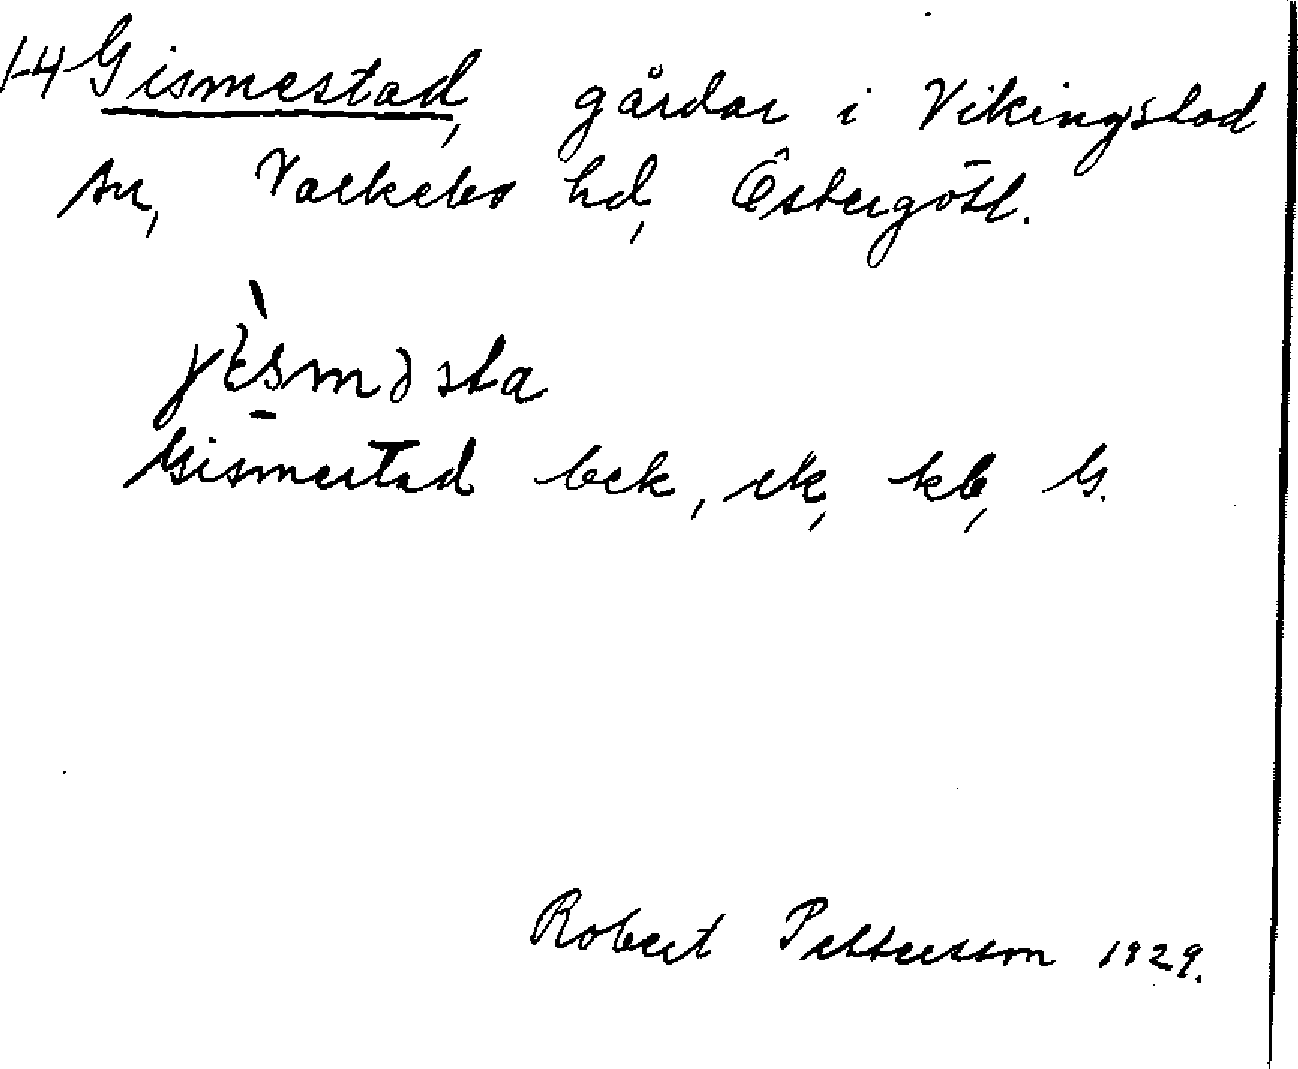 1-4 Gismestad, gårdar i Vikingstad
sn, Valkebo hd, Östergötl.
jìsməsta
Gismestad bek, ek, kb, G.
Robert Pettersson 1929.